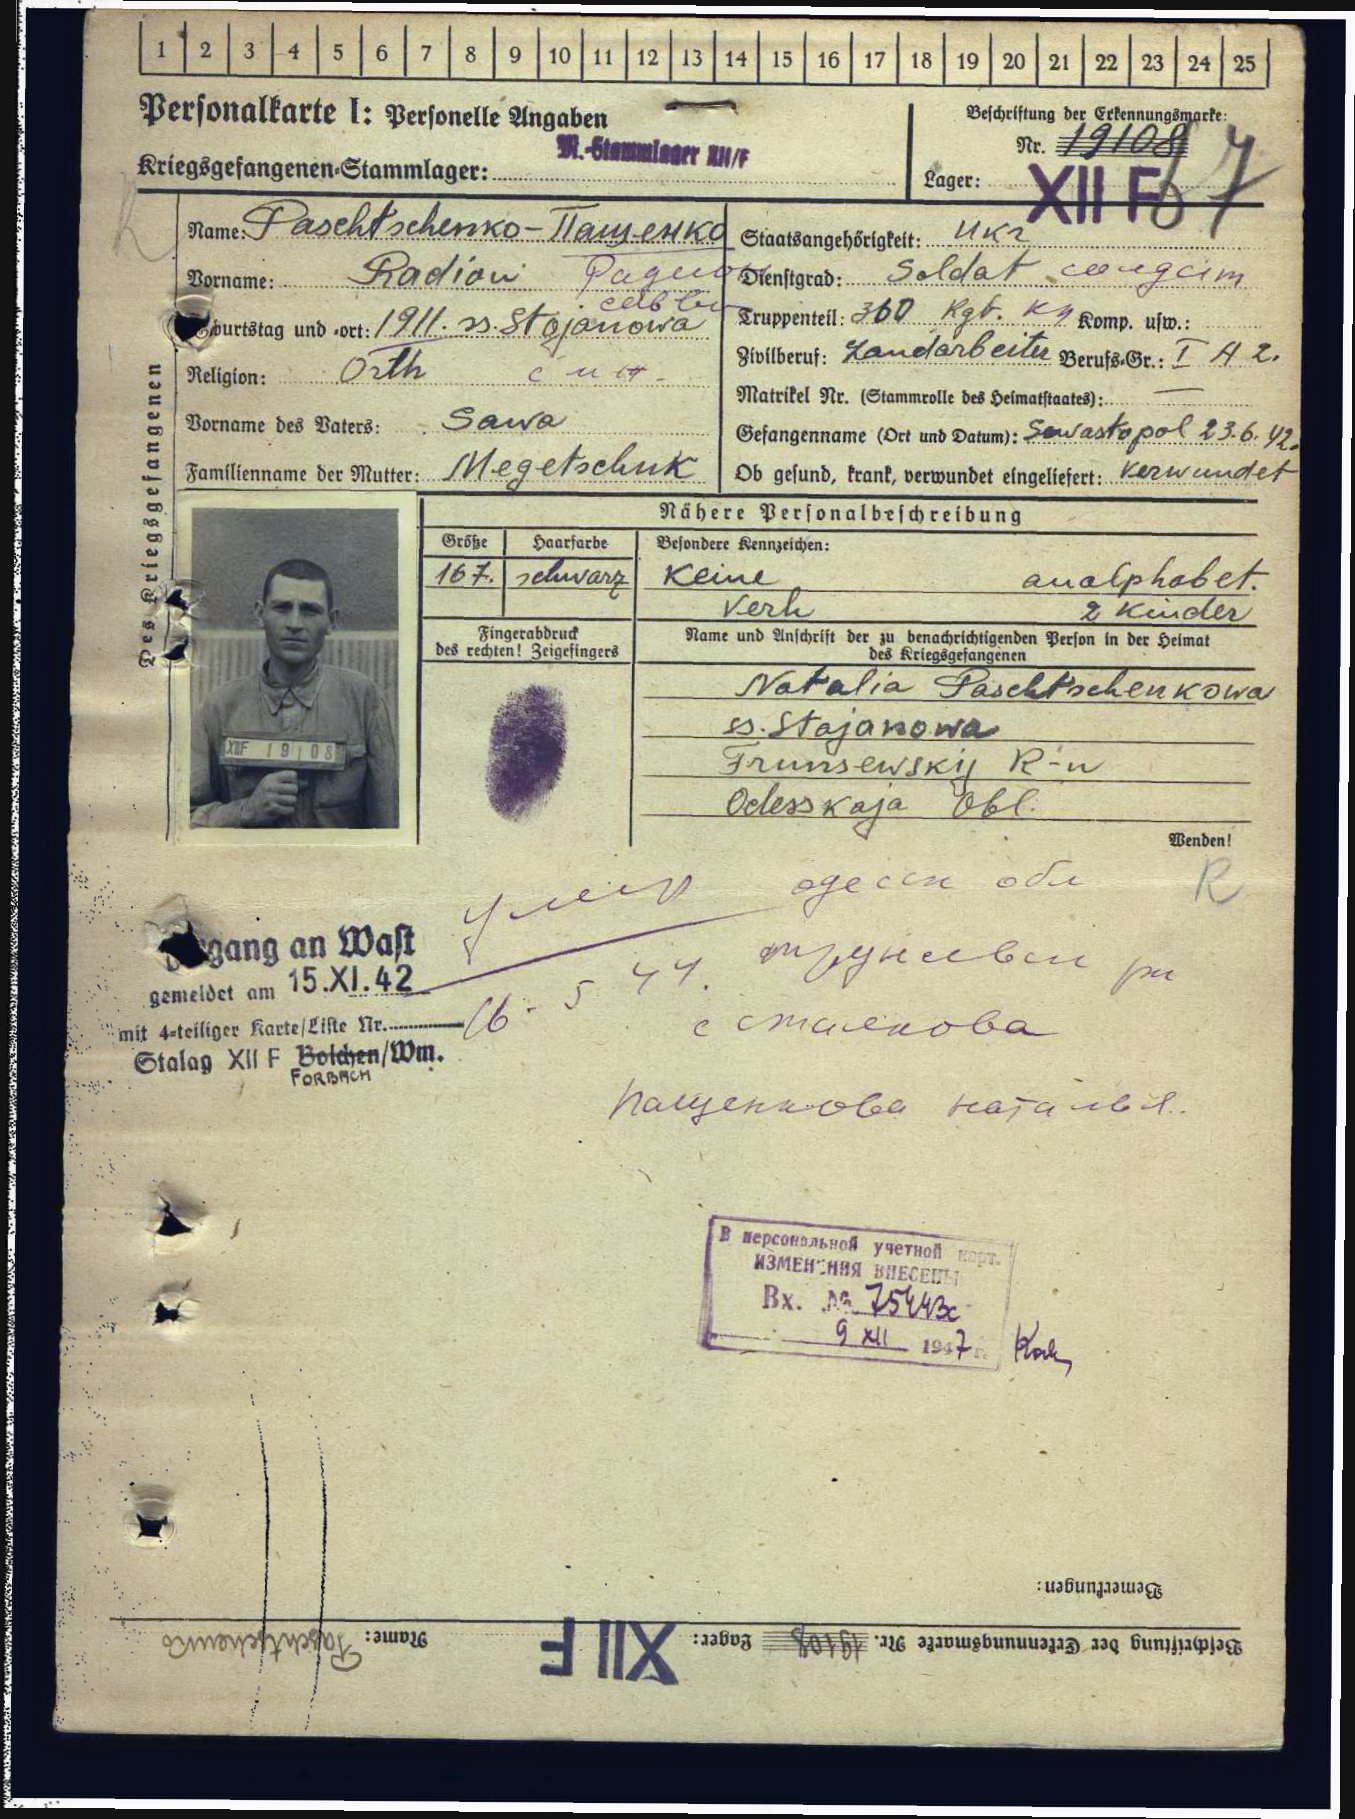 1 2 3 4 5 6 7 8 9 10 11 12 13 14 15 16 17 18 19 20 21 22 23 24 25
Personalkarte I: Personelle Angaben
Kriegsgefangenen-Stammlager: M.-Stammlager XII/F
Beschriftung der Erkennungsmarke:
Nr. 19108
Lager: XII F
67
Des Kriegsgefangenen
Name: Paschtschenko - Пащенко
Vorname: Radion Радион
Geburtstag und -ort: 1911. ss. Stojanowa
Religion: Orth
Vorname des Vaters: Sawa
Familienname der Mutter: Megetschuk
Staatsangehörigkeit: Ukr
Dienstgrad: Soldat солдат
Truppenteil: 360 Rgt. Komp. usw.:
Zivilberuf: Landarbeiter Berufs-Gr.: I A 2.
Matrikel Nr. (Stammrolle des Heimatstaates): —
Gefangenname (Ort und Datum): Sewastopol 23.6.42.
Ob gesund, krank, verwundet eingeliefert: verwundet
Nähere Personalbeschreibung
Größe Haarfarbe Besondere Kennzeichen:
167. schwarz Keine analphabet.
Verh 2 Kinder
Fingerabdruck
des rechten! Zeigefingers
Name und Anschrift der zu benachrichtigenden Person in der Heimat
des Kriegsgefangenen
Natalia Paschtschenkowa
ss. Stojanowa
Frunsewskij R-n
Odesskaja Obl.
XIIF 19108
Wenden!
R
умер одесск обл
16. 5 44.
с стаенова
Пащенкова наталья.
gang an Wast
gemeldet am 15.XI.42
mit 4-teiliger Karte/Liste Nr.
Stalag XII F Bolchen/Wm.
FORBACH
В персональной учетной карт.
ИЗМЕНЕНИЯ ВНЕСЕНЫ
Вх. №
9 XII 1947 г.
Bemerkungen:
Beschriftung der Erkennungsmarke Nr. 19108 Lager: XII F Name: Paschtschenko